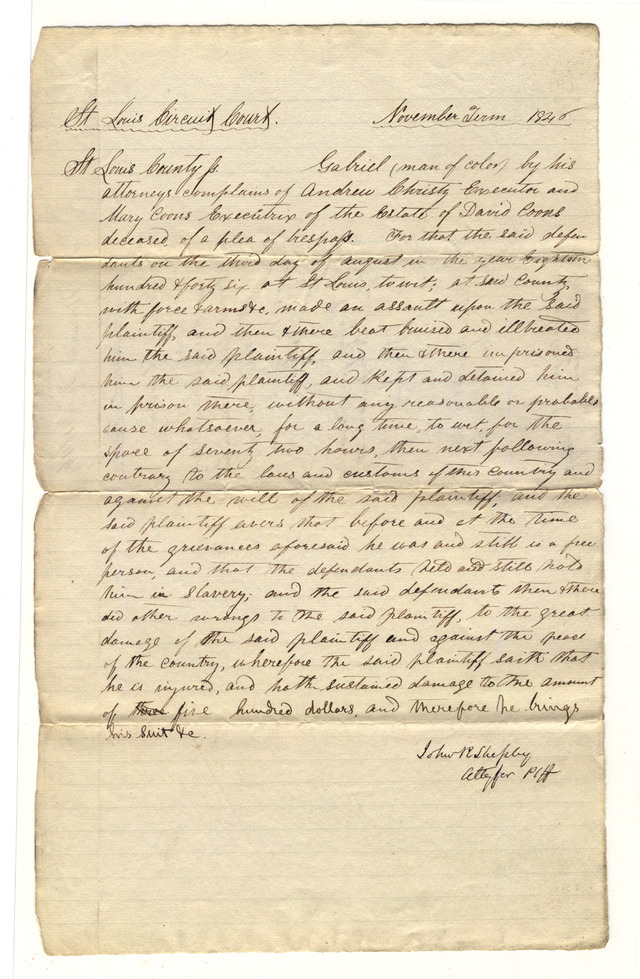 St Louis Circuit Court. November Term 1846
St Louis County ss. Gabriel (man of color) by his
attorneys complains of Andrew Christy Executor and
Mary Coons Executrix of the Estate of David Coons
deceased of a plea of trespass. For that the said defen
dants on the third day of august in the year Eighteen
hundred & forty six at St Louis, to wit; at said County
with force & arms &c, made an assault upon the said
plaintiff, and then & there beat bruised and illtreated
him the said plaintiff, and then & there imprisoned
him the said plaintiff, and Kept and detained him
in prison there, without any reasonable or probable
cause whatsoever, for a long time, to wit, for the
space of seventy two hours, then next following
contrary to the laws and customs of this Country and
against the will of the said plaintiff, and the
said plaintiff avers that before and at the time
of the grievances aforesaid he was and still is a free
person, and that the defendants held and still hold
him in Slavery; and the said defendants then & there
did other wrongs to the said plaintiff, to the great
damage of the said plaintiff and against the peace
of the country, wherefore the said plaintiff saith that
he is injured, and hath sustained damage to the amount
of three five hundred dollars, and therefore he brings
his suit &c.
John R Shepley
Atty for Plff